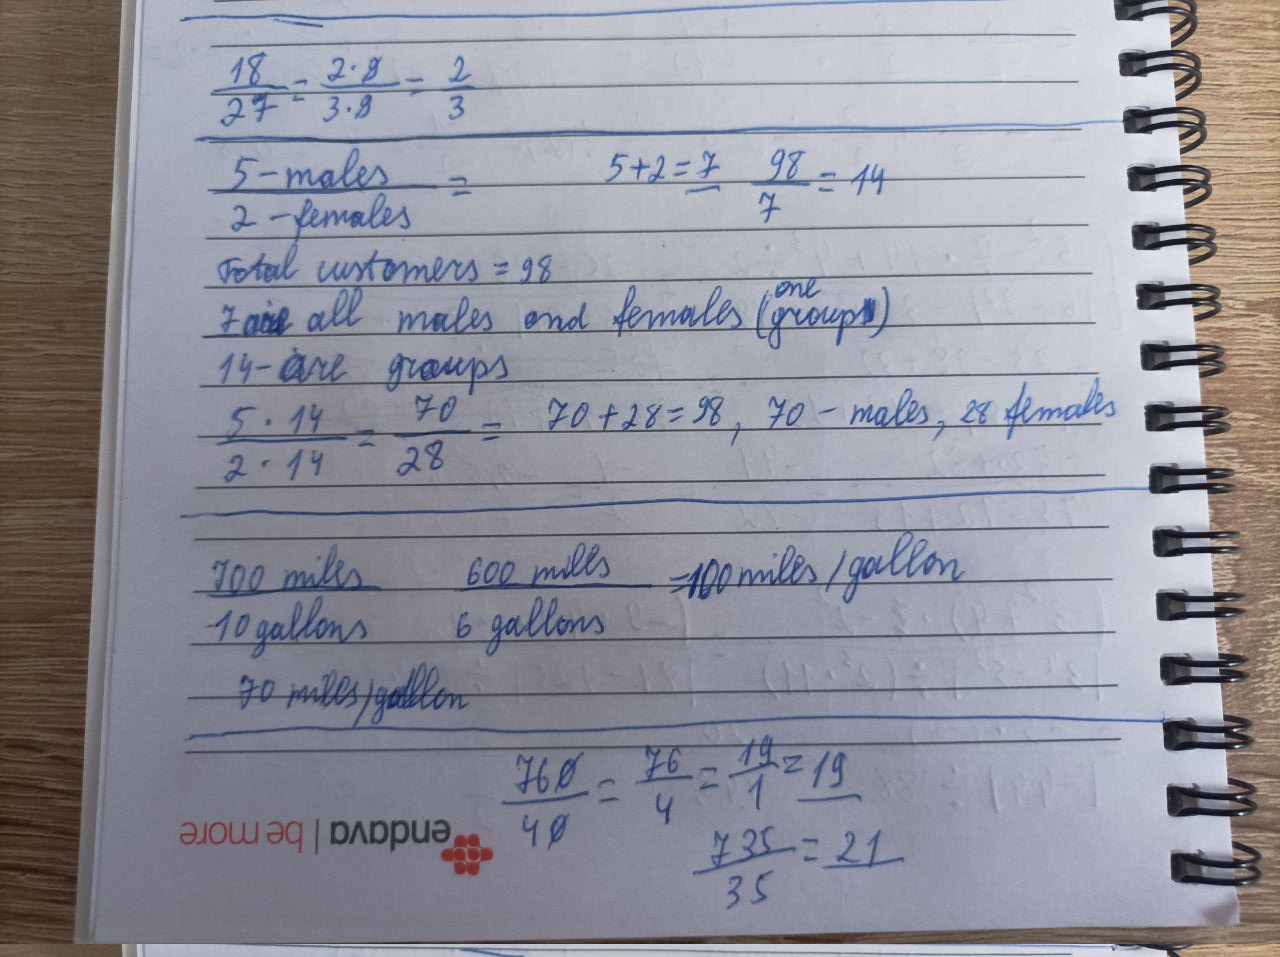 18/27 = 2·9/3·9 = 2/3
5 - males / 2 - females = 5+2=7 98/7 = 14
Total customers = 98
7 are all males and females (one group)
14 - are groups
5·14/2·14 = 70/28 = 70+28=98, 70 - males, 28 females
700 miles / 10 gallons 600 miles / 6 gallons =100 miles/gallon
70 miles/gallon
760/40 = 76/4 = 19/1 = 19
735/35 = 21
endava | be more